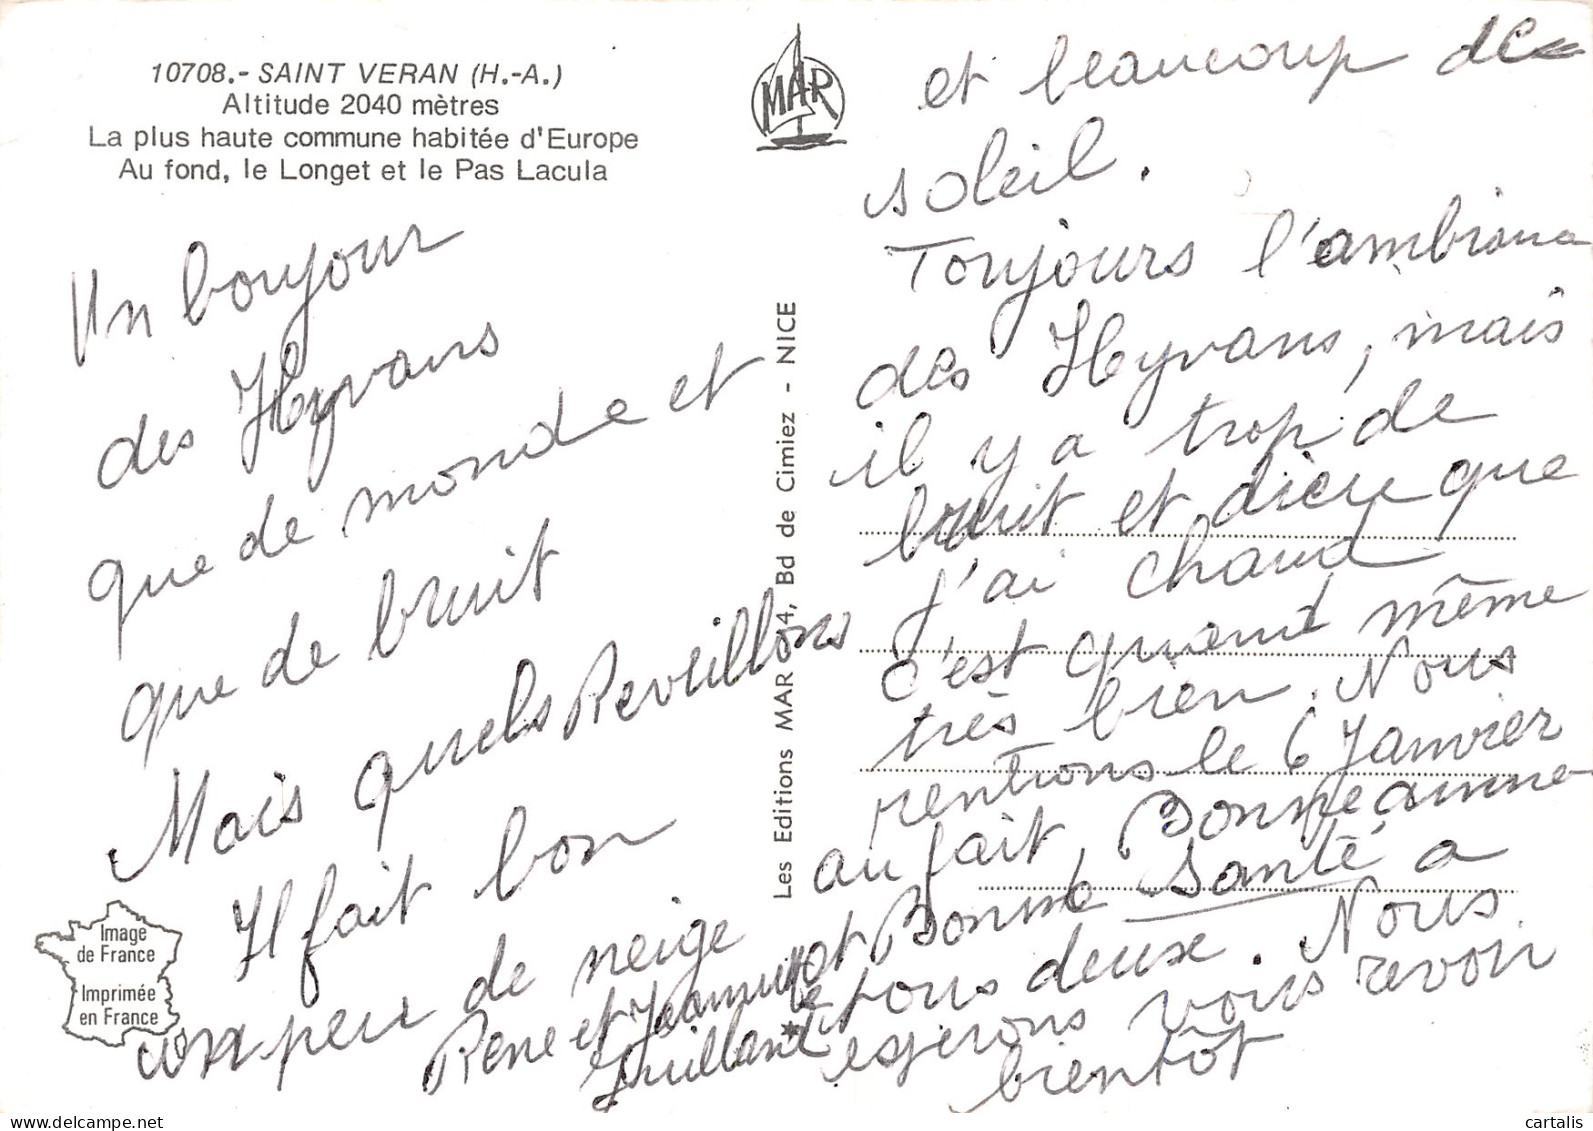 10708.- SAINT VERAN (H.-A.)
Altitude 2040 mètres
La plus haute commune habitée d'Europe
Au fond, le Longet et le Pas Lacula
MAR
Un bonjour
des Hyvans
que de monde et
que de bruit
Mais quels Reveillons
Il fait bon
un peu de neige
et beaucoup de
soleil.
Toujours l'ambiance
des Hyvans, mais
il y a trop de
bruit et dieu que
j'ai chaud
c'est quand même
très bien. Nous
rentrons le 6 Janvier
au fait, Bonne année
et Bonne Santé a
tous deux. Nous
esperons vous revoir
bientôt
Rene et
Les Editions MAR 14, Bd de Cimiez - NICE
Image
de France
Imprimée
en France
delcampe.net
cartalis